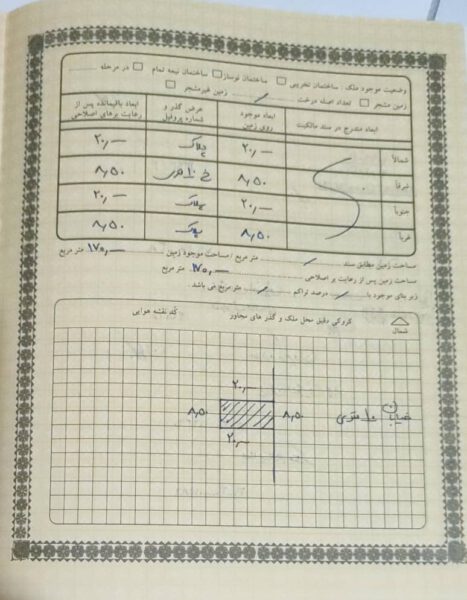 وضعیت موجود ملک : ساختمان تخریبی ساختمان نوساز ساختمان نیمه تمام در مرحله
زمین مشجر تعداد اصله درخت زمین غیرمشجر
ابعاد مندرج در سند مالکیت ابعاد موجود روی زمین عرض گذر و شماره پروفیل ابعاد باقیمانده پس از رعایت برهای اصلاحی
شمالاً ۲۰,— پلاک ۲۰,—
شرقاً ۸,۵۰ خ ۱۰ متری ۸,۵۰
جنوباً ۲۰,— پلاک ۲۰,—
غرباً ۸,۵۰ پلاک ۸,۵۰
مساحت زمین مطابق سند متر مربع / مساحت موجود زمین ۱۷۰,— متر مربع
مساحت زمین پس از رعایت بر اصلاحی ۱۷۰,— متر مربع
زیر بنای موجود با درصد تراکم متر مربع می باشد .
شمال کروکی دقیق محل ملک و گذر های مجاور کد نقشه هوایی
۲۰,—
خیابان ۱۰ متری ۸,۵۰ ۸,۵۰
۲۰,—